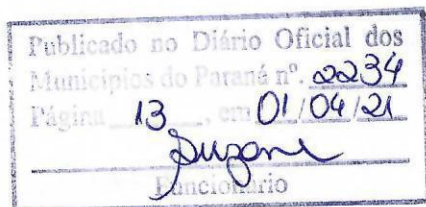 Publicado no Diário Oficial dos
Municípios do Paraná nº. 2234
Página 13, em 01/04/21
Suzane
Funcionário